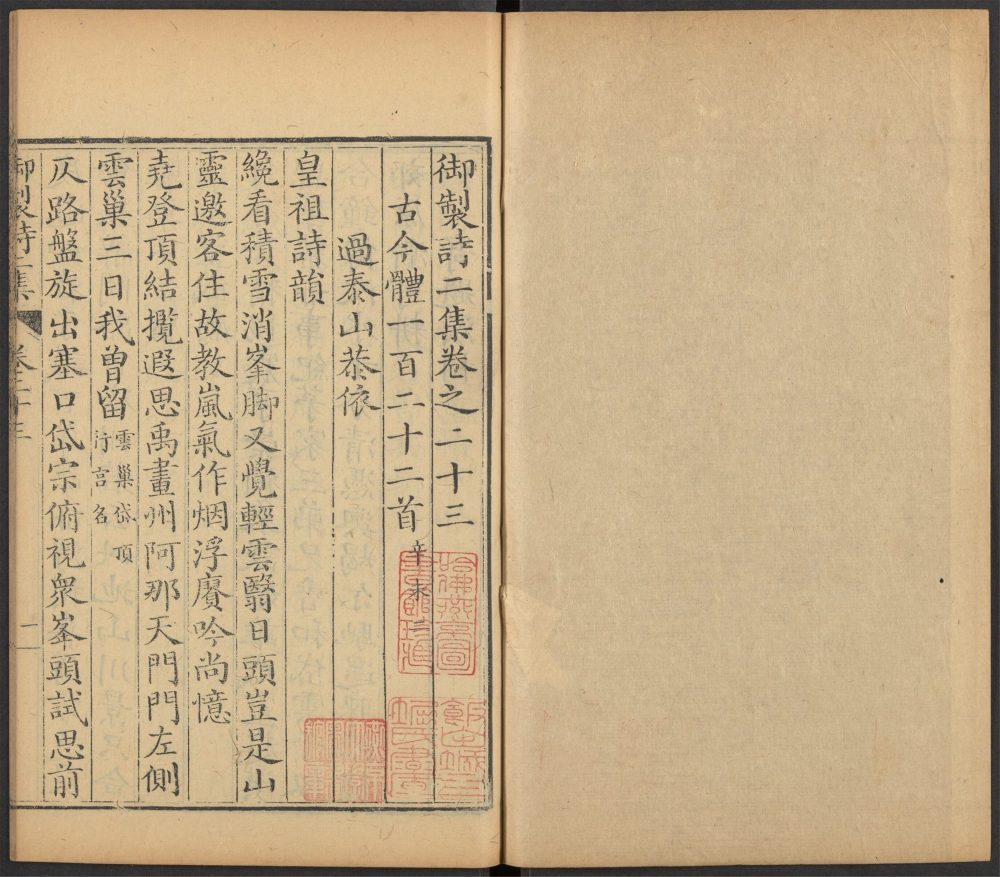 御製詩二集卷之二十三
古今體一百二十二首 辛未三
過泰山恭依
皇祖詩韻
纔看積雪消峯脚又覺輕雲翳日頭豈是山
靈邀客住故教嵐氣作烟浮賡吟尚憶
堯登頂結攬遐思禹畫州阿那天門門左側
雲巢三日我曾留雲巢岱頂
行宮名
仄路盤旋出塞口岱宗俯視衆峯頭試思前
御製詩二集 卷二十三 一
哈佛燕京圖
書館珍藏